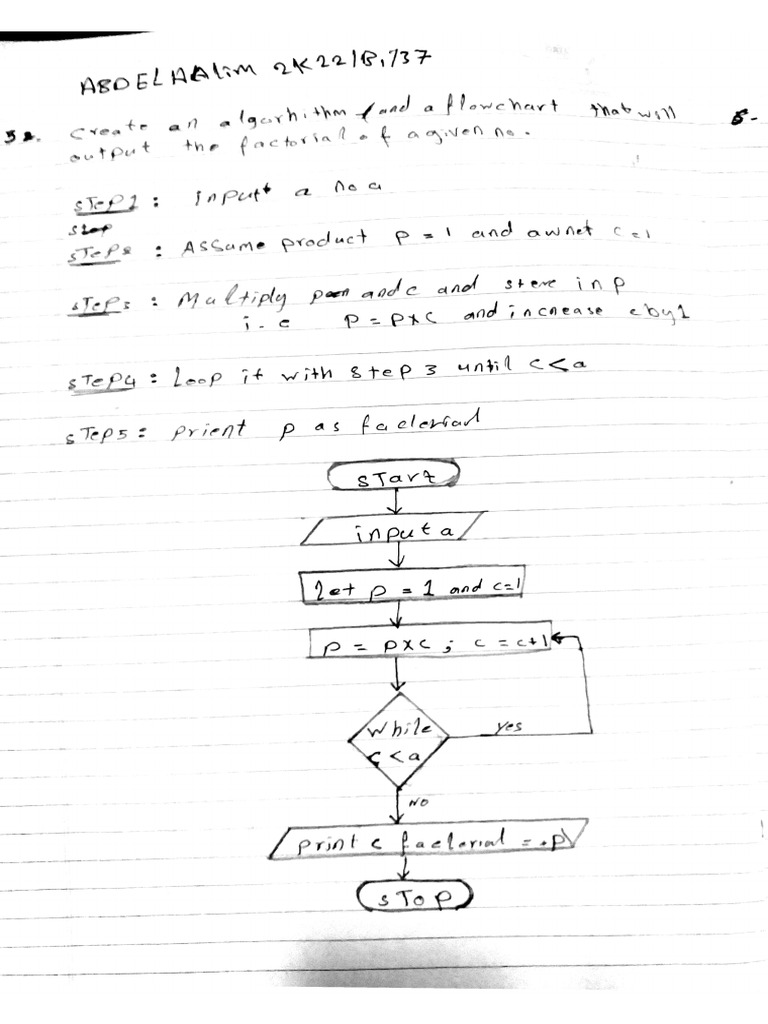 ABDELHAlim 2K22/B,/37
32. Create an algorhithm and a flowchart that will
output the factorial of a given no.
STEP1: input a no a
step
STEP2: Assume product p = 1 and c=1
STEP3: Multiply and c and store in p
i.e P = P×C and increase c by 1
STEP4: Loop it with step 3 until c<a
STEP5: prient p as faclerial
START
input a
let p = 1 and c=1
P = P×C ; c = c+1
While
c<a
yes
NO
print c faclorial = .p
STOP